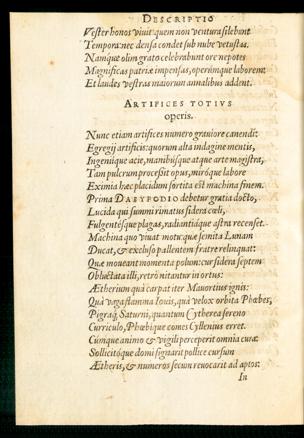 DESCRIPTIO
Vester honos viuit quem non ventura silebunt
Tempora: nec densa condet sub nube vetustas.
Namque olim grato celebrabunt ore nepotes
Magnificas patriæ impensas, operemque laborem:
Et laudes vestras maiorum annalibus addent.
ARTIFICES TOTIVS
operis.
Nunc etiam artifices numero grauiore canendi:
Egregij artificis: quorum alta indagine mentis,
Ingenijque acie, manibúsque atque arte magistra,
Tam pulcrum processit opus, miróque labore
Eximia hæc placidum sortita est machina finem.
Prima DASYPODIO debetur gratia docto,
Lucida qui summi rimatus sidera cœli,
Fulgentésque plagas, radiantiáque astra recenset.
Machina quo viuat motu: quæ semita Lunam
Ducat, & excluso pallentem fratre relinquat:
Quæ moueant momenta polum: cur sidera septem
Obluctata illi, retrò nitantur in ortus:
Ætherium quà carpat iter Mauortius ignis:
Quà vaga flamma Iouis, quà velox orbita Phœbes,
Pigráq; Saturni, quantum Cytherea sereno
Curriculo, Phœbique comes Cyllenius erret.
Cúmque animo & vigili perceperit omnia cura:
Sollicitóque domi signarit pollice cursum
Ætheris, & numeros secum reuocarit ad aptos:
In